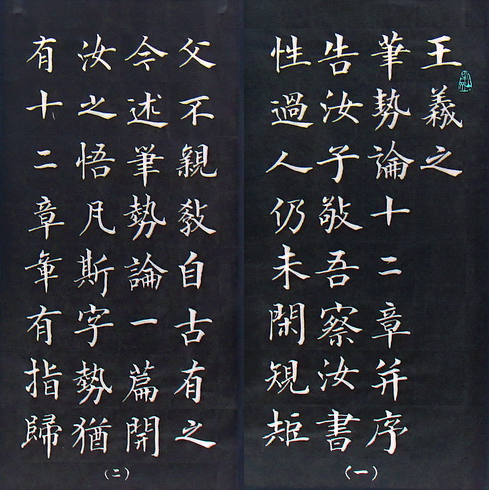 王羲之
筆勢論十二章并序
告汝子敬吾察汝書
性過人仍未閑規矩
(一)
父不親教自古有之
今述筆勢論一篇開
汝之悟凡斯字勢猶
有十二章章有指歸
(二)